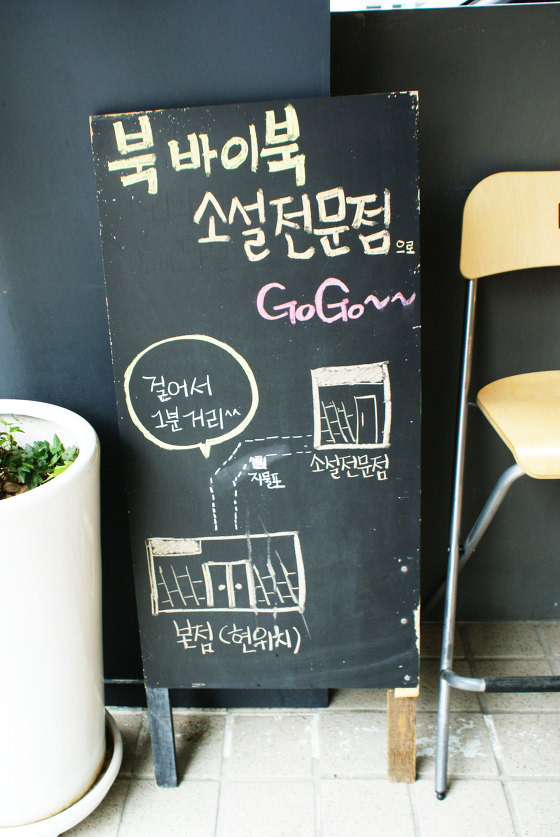 북바이북
소설전문점으로
GoGo~~
걸어서
1분거리^^
소설전문점
지물포
본점(현위치)